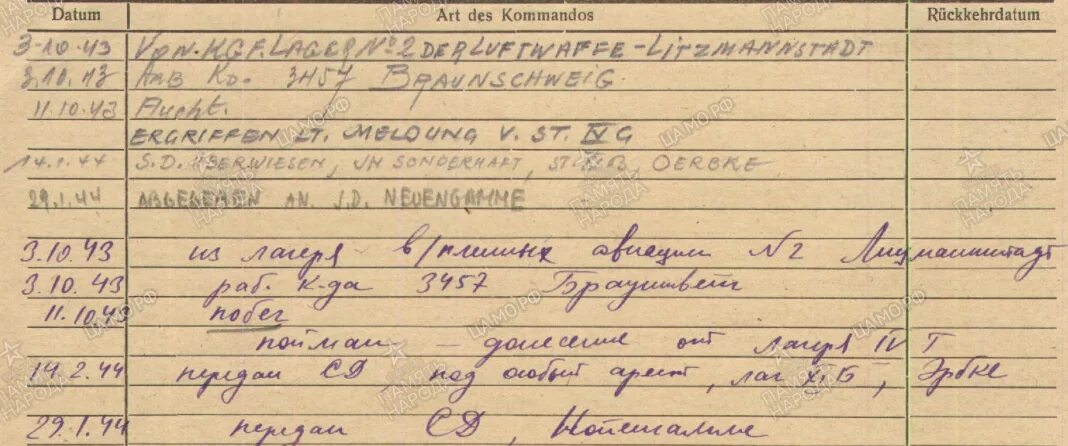 Datum Art des Kommandos Rückkehrdatum
3.10.43 VON. KGF. LAGER No 2 DER LUFTWAFFE - LITZMANNSTADT
3.10.43 Arb Kd. 3457 BRAUNSCHWEIG
11.10.43 Flucht.
ERGRIFFEN LT. MELDUNG V. ST. IV G
14.1.44 S.D. ÜBERWIESEN, IN SONDERHAFT, OERBKE
29.1.44 ABGEGEBEN AN. S.D. NEUENGAMME
3.10.43 из лагеря в/пленных авиации N 2 Лицманштадт
3.10.43 раб. к-да 3457 Брауншвейг
11.10.43 побег
пойман – донесение от лагеря IV Г
14.2.44 передан СД под особый арест, лаг XI Б, Эрбке
29.1.44 передан СД, Нойенгамме